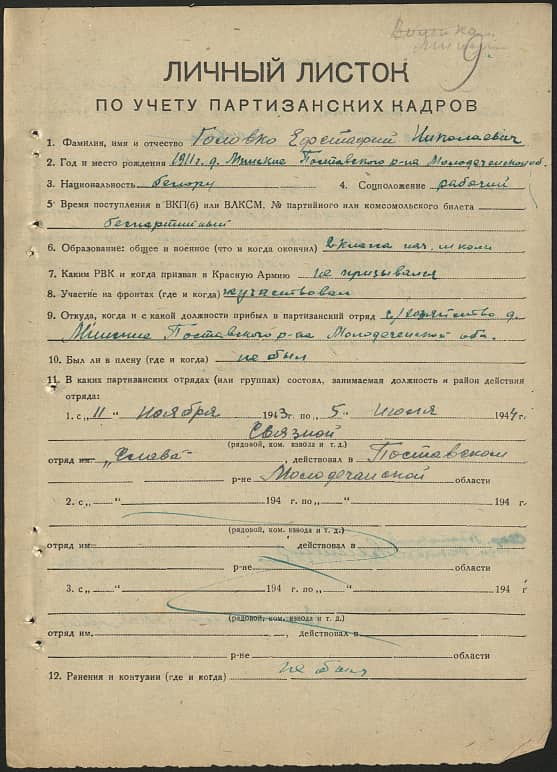 9
ЛИЧНЫЙ ЛИСТОК
ПО УЧЕТУ ПАРТИЗАНСКИХ КАДРОВ
1. Фамилия, имя и отчество Головко Ефстафий Николаевич
2. Год и место рождения 1911 г. д. Миские Поставского р-на Молодеченской об.
3. Национальность белору 4. Соцположение рабочий
5. Время поступления в ВКП(б) или ВЛКСМ, № партийного или комсомольского билета
беспартийный
6. Образование: общее и военное (что и когда окончил) 2 класса нач. школы
7. Каким РВК и когда призван в Красную Армию не призывался
8. Участие на фронтах (где и когда) не участвовал
9. Откуда, когда и с какой должности прибыл в партизанский отряд с/хозяйство д.
Миские Поставского р-на Молодеченской обл.
10. Был ли в плену (где и когда) не был
11. В каких партизанских отрядах (или группах) состоял, занимаемая должность и район действия
отряда:
1. с „11“ ноября 1943 г. по „5“ июля 1944 г.
Связной
(рядовой, ком. взвода и т. д.)
отряд им. „Слава“, действовал в Поставском
р-не Молодечанской области
2. с „ “ 194 г. по „ “ 194 г.
(рядовой, ком. взвода и т. д.)
отряд им. действовал в
р-не области
3. с „ “ 194 г. по „ “ 194 г
(рядовой, ком. взвода и т. д.)
отряд им. , действовал в
р-не области
12. Ранения и контузии (где и когда) не был